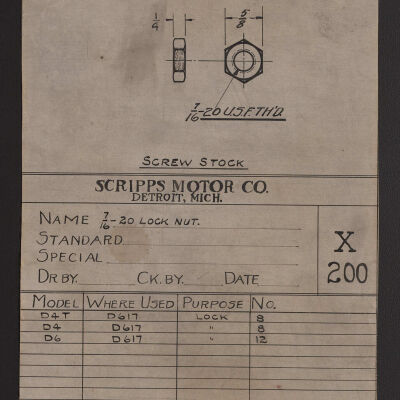 1/4
5/8
7/16-20 U.S.F. TH'D
SCREW STOCK
SCRIPPS MOTOR CO.
DETROIT, MICH.
NAME 7/16-20 LOCK NUT.
STANDARD
SPECIAL
DR BY. CK. BY. DATE
X
200
MODEL WHERE USED PURPOSE NO.
D4T D617 LOCK 8
D4 D617 " 8
D6 D617 " 12